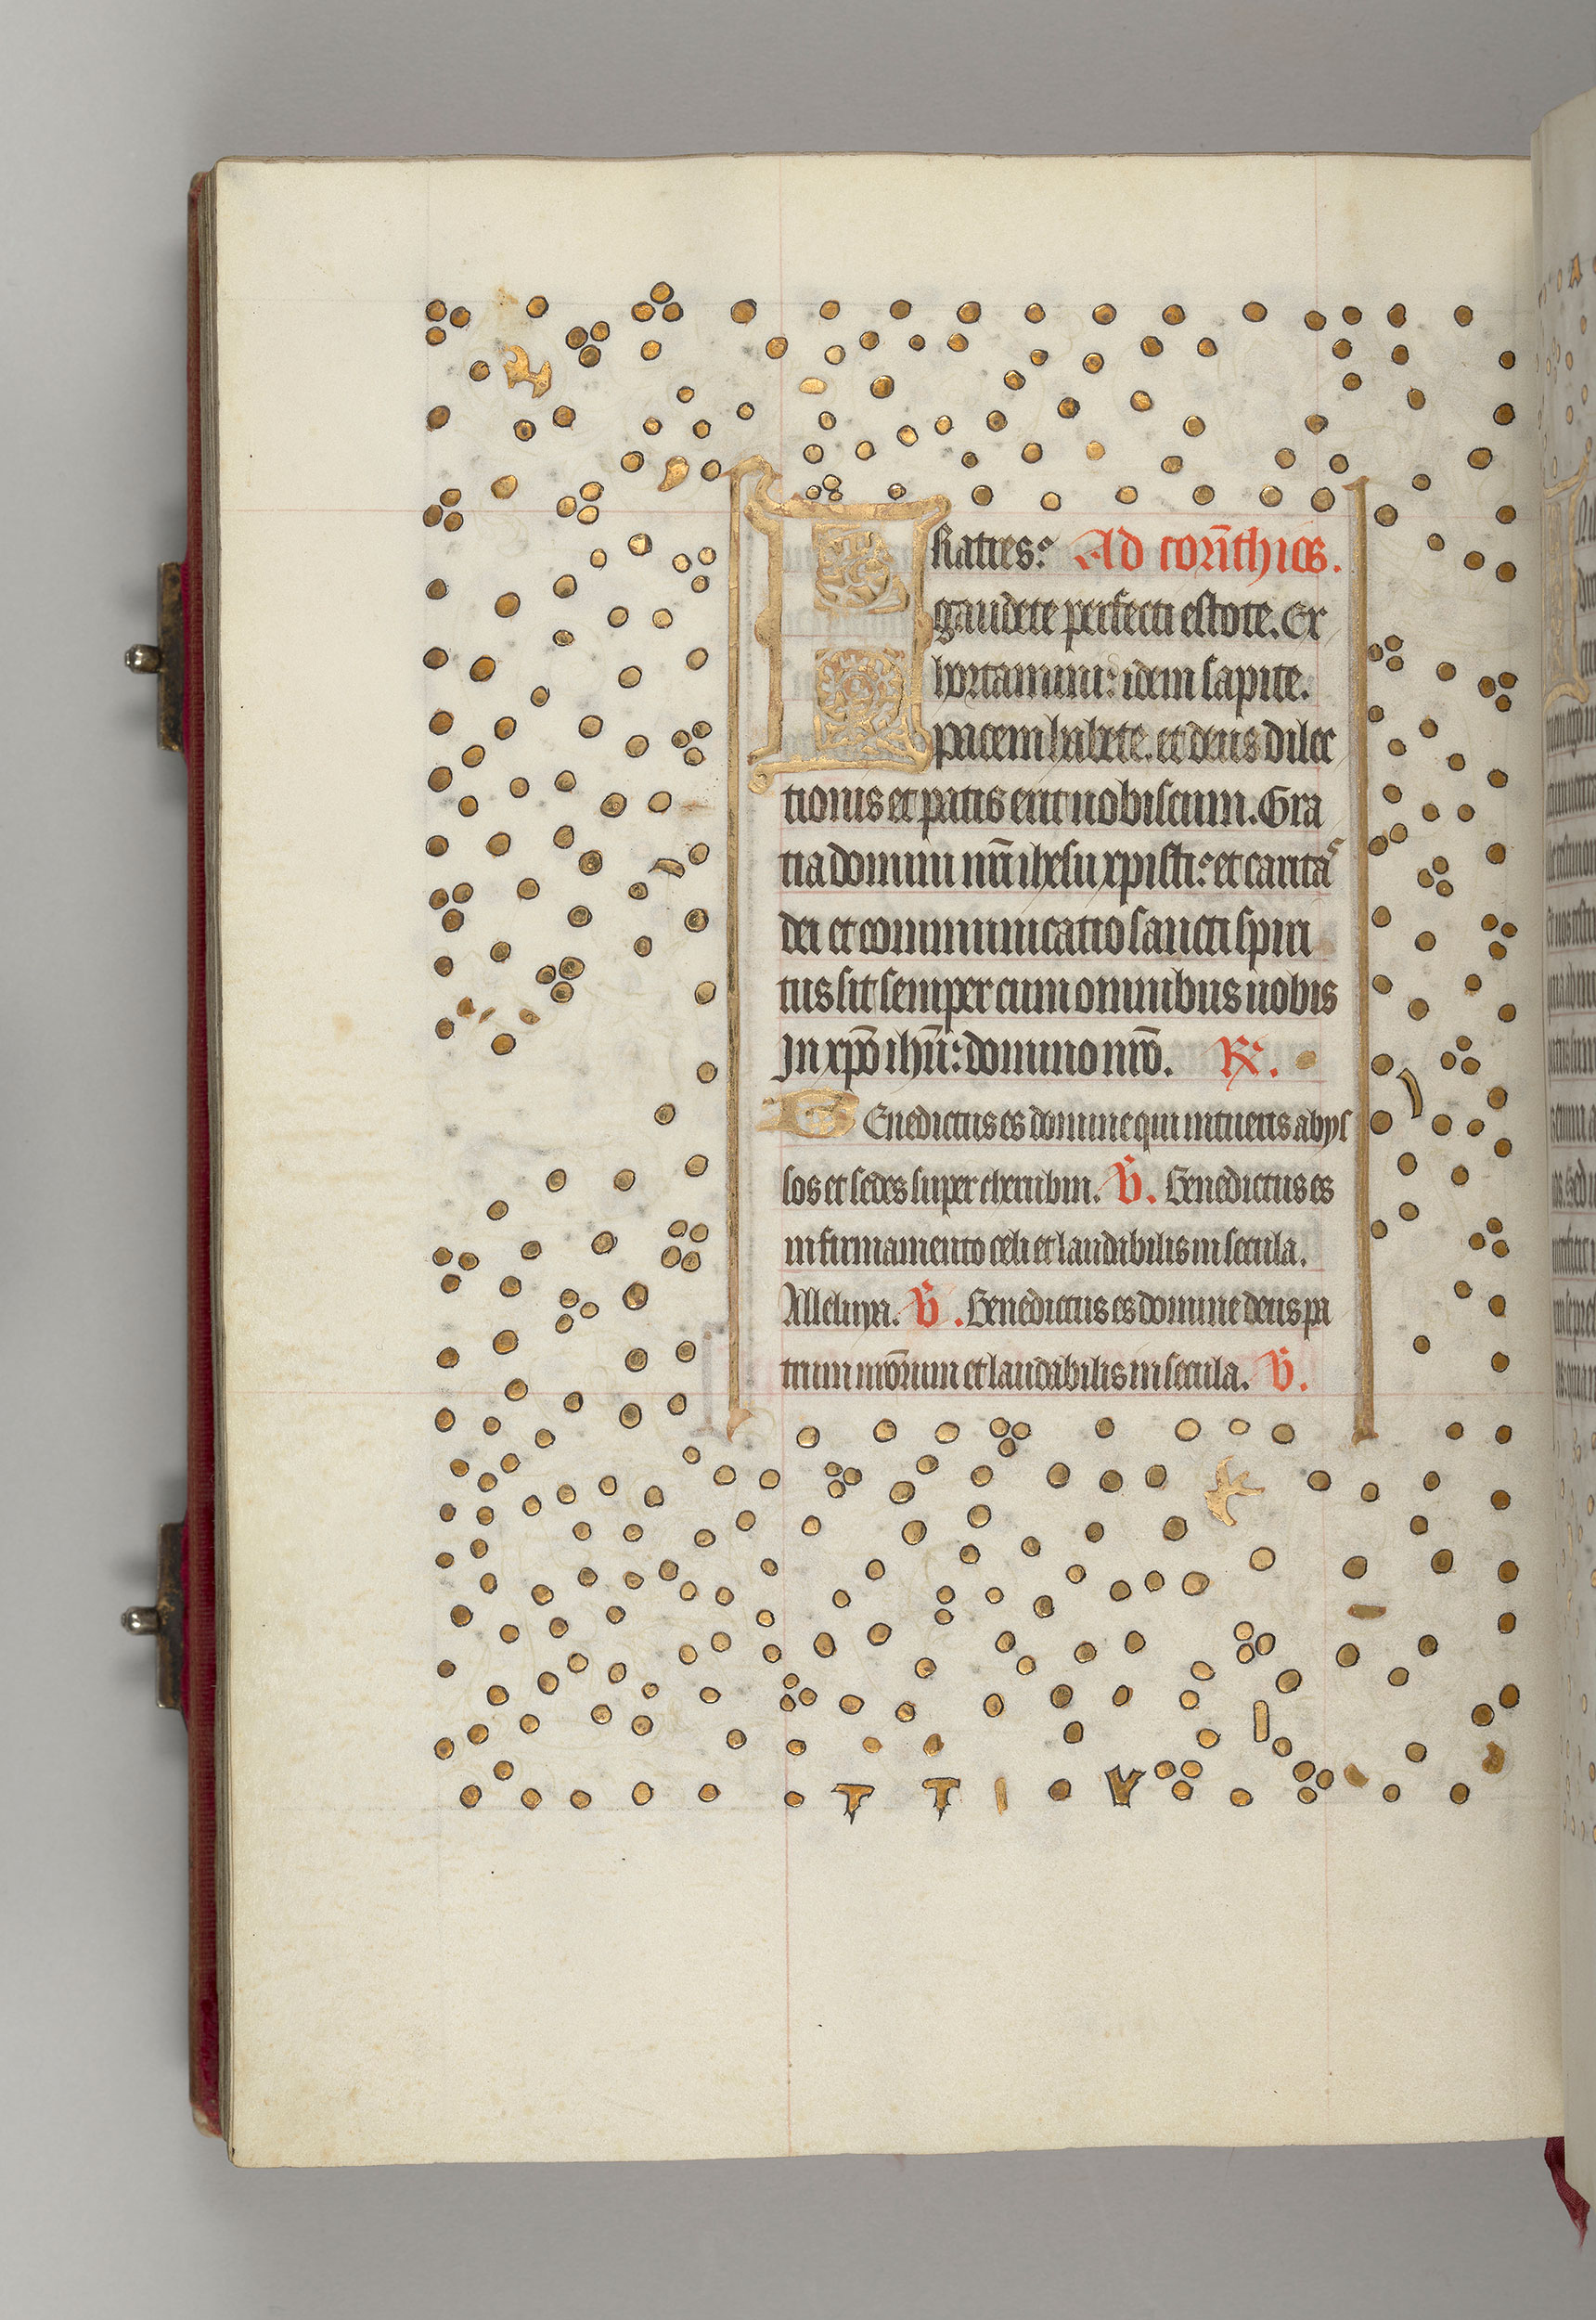 Fratres: Ad corīthios.
gaudete perfecti estote. Ex
hortamini: idem sapite.
pacem habete. et deus dilec
tionis et pacis erit uobiscum. Gra
tia domini nr̄i ihesu xpisti: et carita
dei et communicatio sancti spiri
tus sit semper cum omnibus uobis
In xp̄o ihū: domino nr̄o. R̄.
Benedictus es domine qui intueris abys
sos et sedes super cherubin. V̄. Benedictus es
in firmamento celi et laudabilis in secula.
Alleluya. V̄. Benedictus es domine deus pa
trum nr̄orum et laudabilis in secula. V̄.